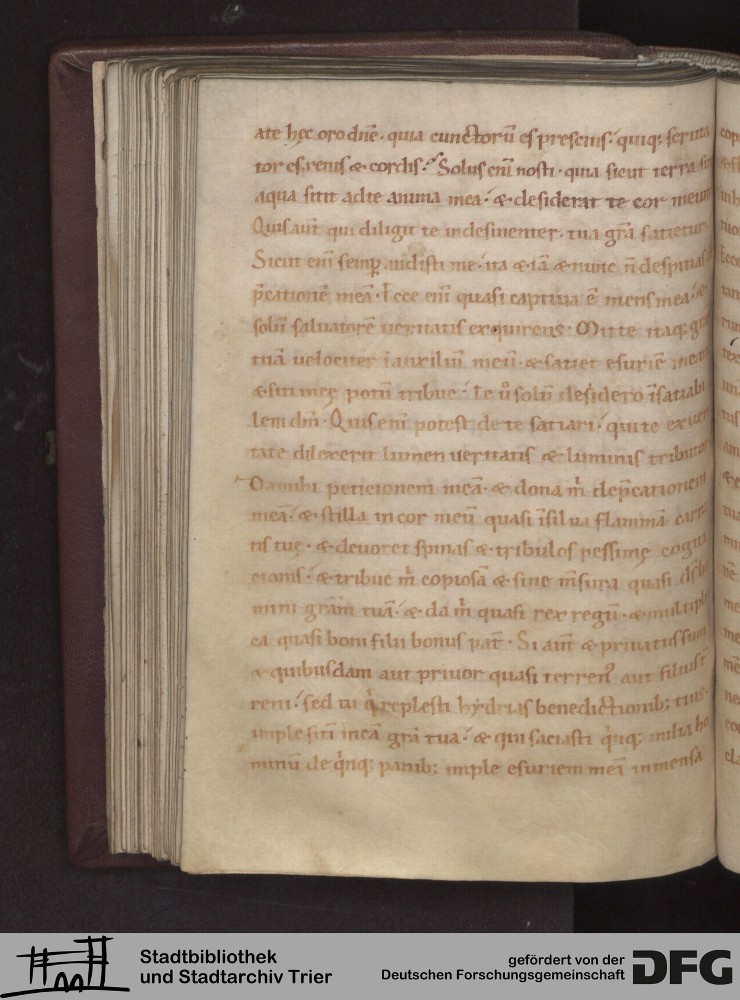 ate hęc oro dnē· quia cunctorū es prescius· quiq; scruta
tor es renis & cordis· Solus enī nosti· quia sicut terra sī
aqua sitit ad te anima mea· & desiderat te cor meum
Quis aūt qui diligit te indesinenter· tua grā satietur·
Sicut enī semp audisti me· ita & iā & nunc n̄ despicias
p̄cationē meā· Ecce enī quasi captiua ē mens mea· &
solū saluatorē ueritatis exquirens· Mitte itaq; grā
tuā uelociter ī auxiliū meū· & satiet esuriē meam
& siti meę potū tribue· Te ů solū desidero īsatiabi
lem dm̄· Quis enī potest de te satiari· qui te ex ueri
tate dilexerit lumen ueritatis & luminis tributor
Da michi peticionem meā· & dona m̄ dep̄cationem
meā· & stilla in cor meū quasi ī silua flammā carita
tis tuę· & deuoret spinas & tribulos pessimę cogita
cionis· & tribue m̄ copiosā & sine m̄sura quasi ds̄ ho
mini grām tuā· & da m̄ quasi rex regū· & multipli
ca quasi boni filii bonus pat̄· Si aūt & priuatis sum
& quibusdam aut priuor quasi terren⁹ aut filius t̄
reni· sed tu q̇ replesti hydrias benedictionib; tuis·
imple sitī meā grā tua· & qui saciasti q̇nq; milia ho
minū de q̇nq; panib; imple esuriem meā in mensa
Stadtbibliothek
und Stadtarchiv Trier
gefördert von der
Deutschen Forschungsgemeinschaft
DFG